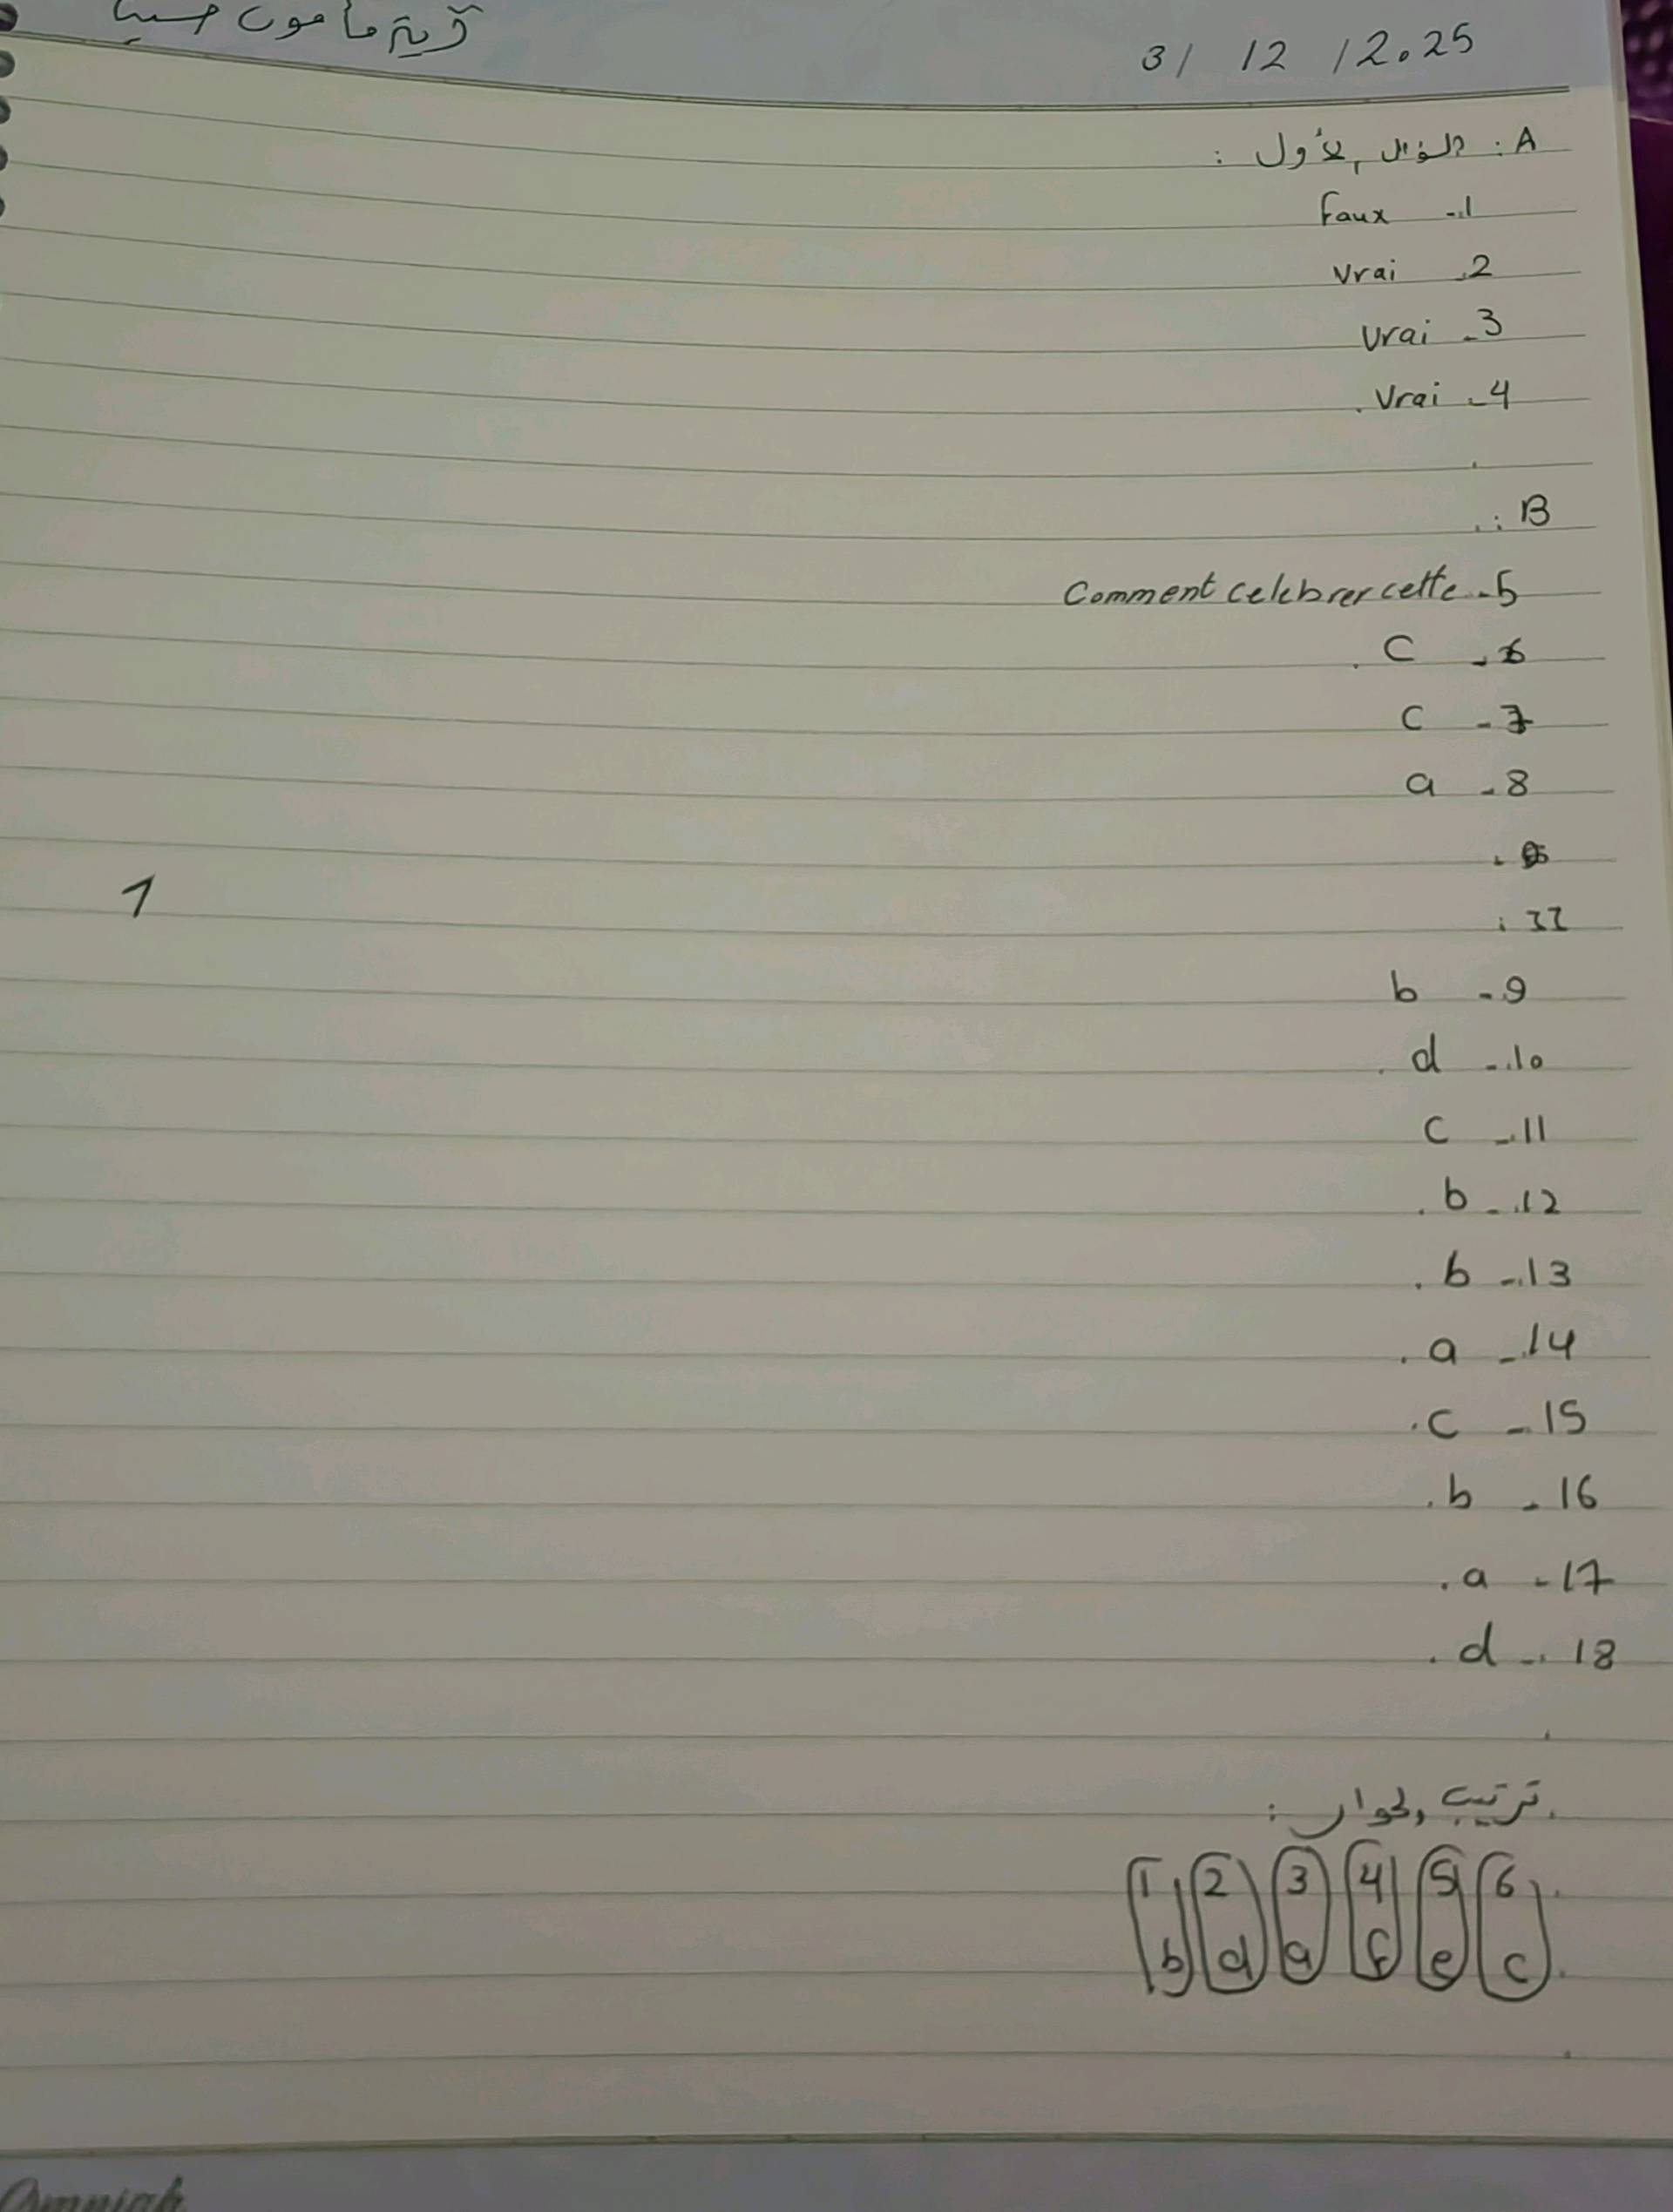 آية مامون
31 / 12 / 2025
A : السؤال الأول :
1- Faux
2- Vrai
3- Vrai
4- Vrai .
B :
5- Comment celebrer cette
6- C .
7- C
8- a
II :
1
9- b
10- d .
11- C
12- b .
13- b .
14- a .
15- C .
16- b .
17- a .
18- d .
ترتيب الحوار :
1 2 3 4 5 6
b d a f e c